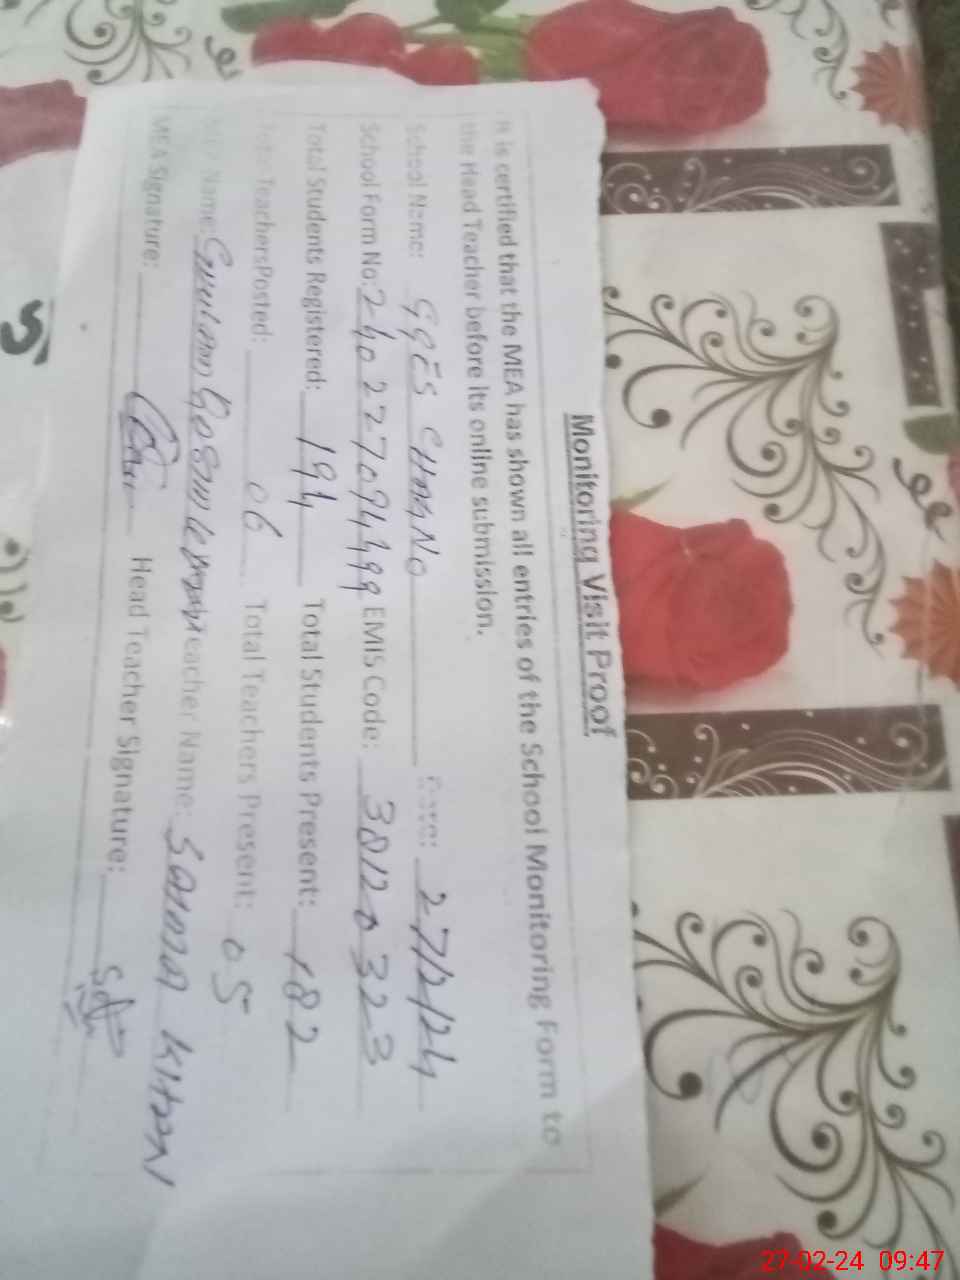 Monitoring Visit Proof
It is certified that the MEA has shown all entries of the School Monitoring Form to
the Head Teacher before its online submission.
School Name: GGES CHNNo Date: 27/2/24
School Form No: 240227094499 EMIS Code: 38120323
Total Students Registered: 194 Total Students Present: 182
Total Teachers Posted: 06 Total Teachers Present: 05
MEA Name: Teacher Name: Saima KHAN
MEA Signature: Head Teacher Signature:
27-02-24 09:47